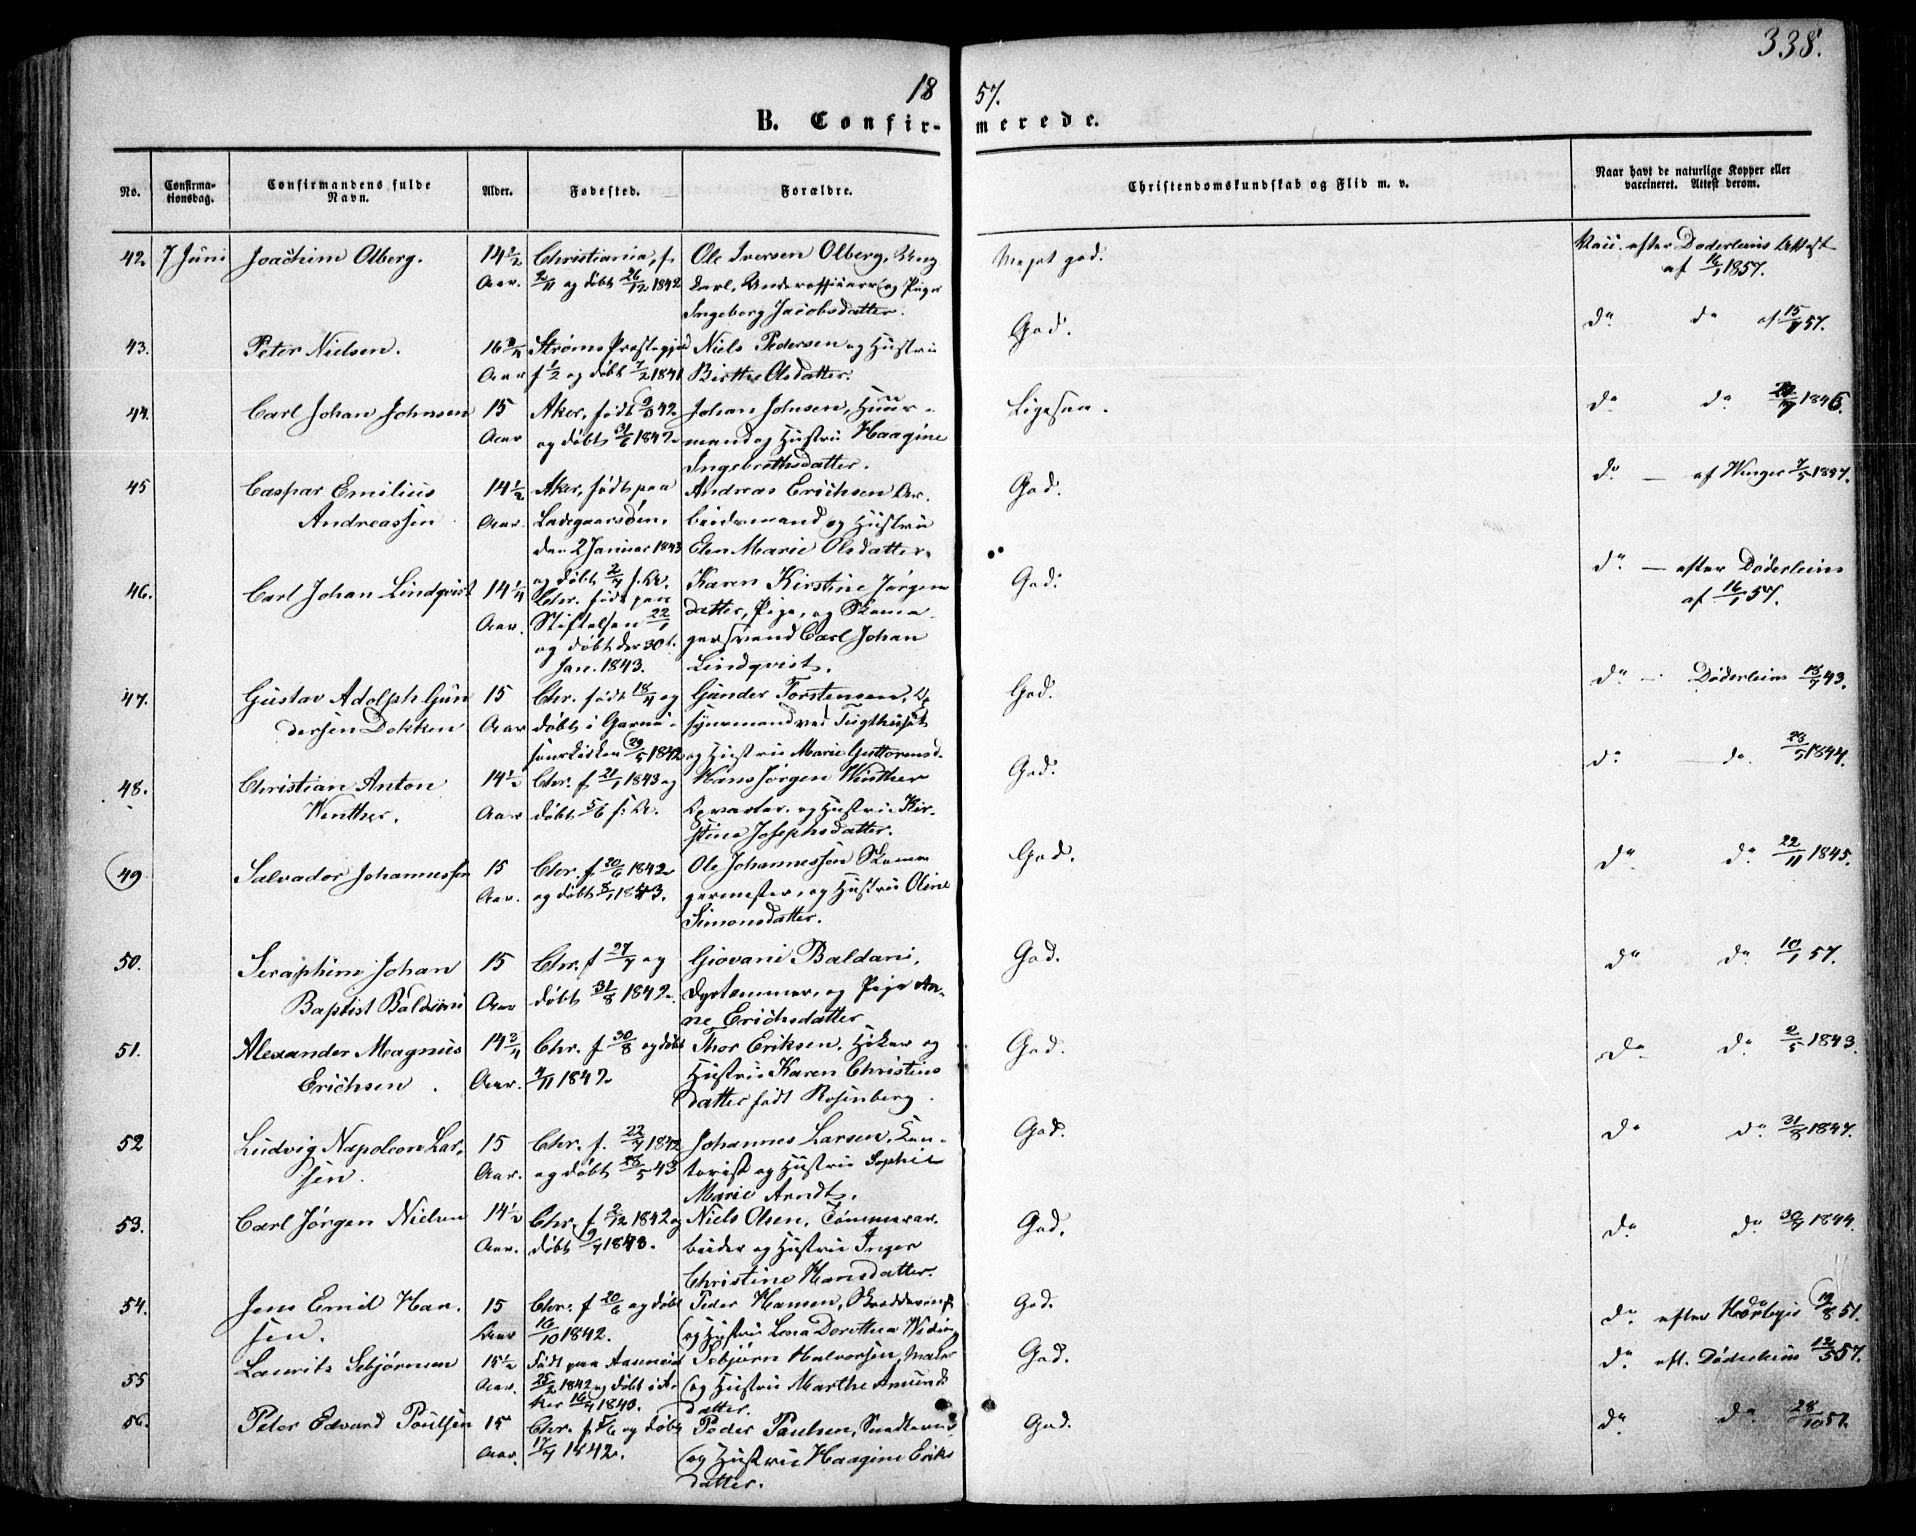 338.
18 57.
B. Confirmerede.
No.
Confirmationsdag.
Confirmandens fulde Navn.
Alder.
Fødested.
Forældre.
Christendomskundskab og Flid m. v.
Naar havt de naturlige Kopper eller vaccineret. Attest derom.
42. 7 Juni Joachim Olberg. 14 1/2 Christiania, f. Ole Iversen Olberg, Ung Meget god. Vacc. efter Døderleins Attest
Aar. 2/11 og døbt 26/12 1842 karl, Underofficeer og Pige af 16/1 1857.
Ingeborg Jacobsdatter.
43. Peter Nielsen. 16 Strøms Præstegjeld Niels Pedersen og Hustru God. do do af 57.
Aar f 1/2 og døbt 7/2 1841 Birthe Olsdatter.
44. Carl Johan Johnsen 15 Aker, født 42. Johan Johnsen, Huus- Ligesaa. do do 1846.
Aar og døbt 31/6 1842. mand og Hustru Haagine
Ingebrethsdatter.
45 Caspar Emilius 14 1/2 Aker, født paa Andreas Erichsen Ar- God. do — af Winger 7/5
Andreassen Aar. Ladegaardsøen, beidsmand og Hustru
den 2 Januar 1843 Elen Marie Olsdatter.
og døbt 2/7 s. A.
46. Carl Johan Lindqvist 14 1/4 Chr. født paa Karen Kirstine Jørgens God. do — efter Døderlein
Aar. Stiftelsen 22/1 datter, Pige, og Skoma- af 16/1 57.
og døbt den 30t gersvend Carl Johan
Jan. 1843. Lindqvist.
47. Gustav Adolph Gun 15 Chr. født 18/4 og Gunder Torstensen, Op God. do — Døderlein 43.
dersen Dokken Aar døbt i Garni- synsmand ved Tugthuset
sonskirken 29/5 1842 og Hustru Marie
48. Christian Anton 14 1/2 Chr. f 21/1 1843 og Hans Jørgen Winther God. do do. 1844.
Winther. Aar døbt 5/6 s. A. og Hustru Kir-
stine Josephsdatter.
49 Salvador Johannessen 15 Chr. f 30/6 1842 Ole Johannessen Skoma God. do do 22/11 1845.
Aar. og døbt 8/1 1843. germester, og Hustru Oline
Simonsdatter.
50. Seraphim Johan 15 Chr. f 27/7 og Giovani Baldani, God. do do 10/1 57.
Baptist Baldani Aar døbt 31/8 1842. Dyrtæmmer, og Pige An-
ne Erichsdatter
51. Alexander Magnus 14 3/4 Chr. f 30/8 og døbt Thor Eriksen, Høker og God. do do 2/5 1843.
Erichsen. Aar. 4/11 1842 Hustru Karen Christens
datter født Rosenberg.
52 Ludvig Napoleon Lar- 15 Chr. f. 22/7 1842 Johannes Larsen, Kon- God. do do 31/8 1847.
sen. Aar. og døbt 43 torist og Hustru Sophie
Marie Arndt.
53. Carl Jørgen Nielsen 14 1/2 Chr. f 2/12 1842 og Niels Olsen, Tømmerar- God. do do 1844.
Aar. døbt 19/7 1843. beider og Hustru Inger
Christine Hansdatter.
54. Jens Emil Han- 15 Chr. f 20/6 og døbt Peder Hansen, Skræddersv. God. do efter 19/8 51.
sen. Aar 16/10 1842. og Hustru Lena Dorothea
55 Lauritz Sebjørnsen 15 1/2 født paa Sebjørn Halvorsen, Maler God. do eft. Døderlein 12/5 57.
Aar. 25/2 1842 og døbt i A- og Hustru Marthe Amunds
ker 16/4 1843. datter.
56. Peter Edvard Poulsen 15 Chr. f 5/6 og døbt Peder Paulsen, God. do do 28/10 57.
Aar. 17/7 1842. og Hustru Haagine Eriks
datter.